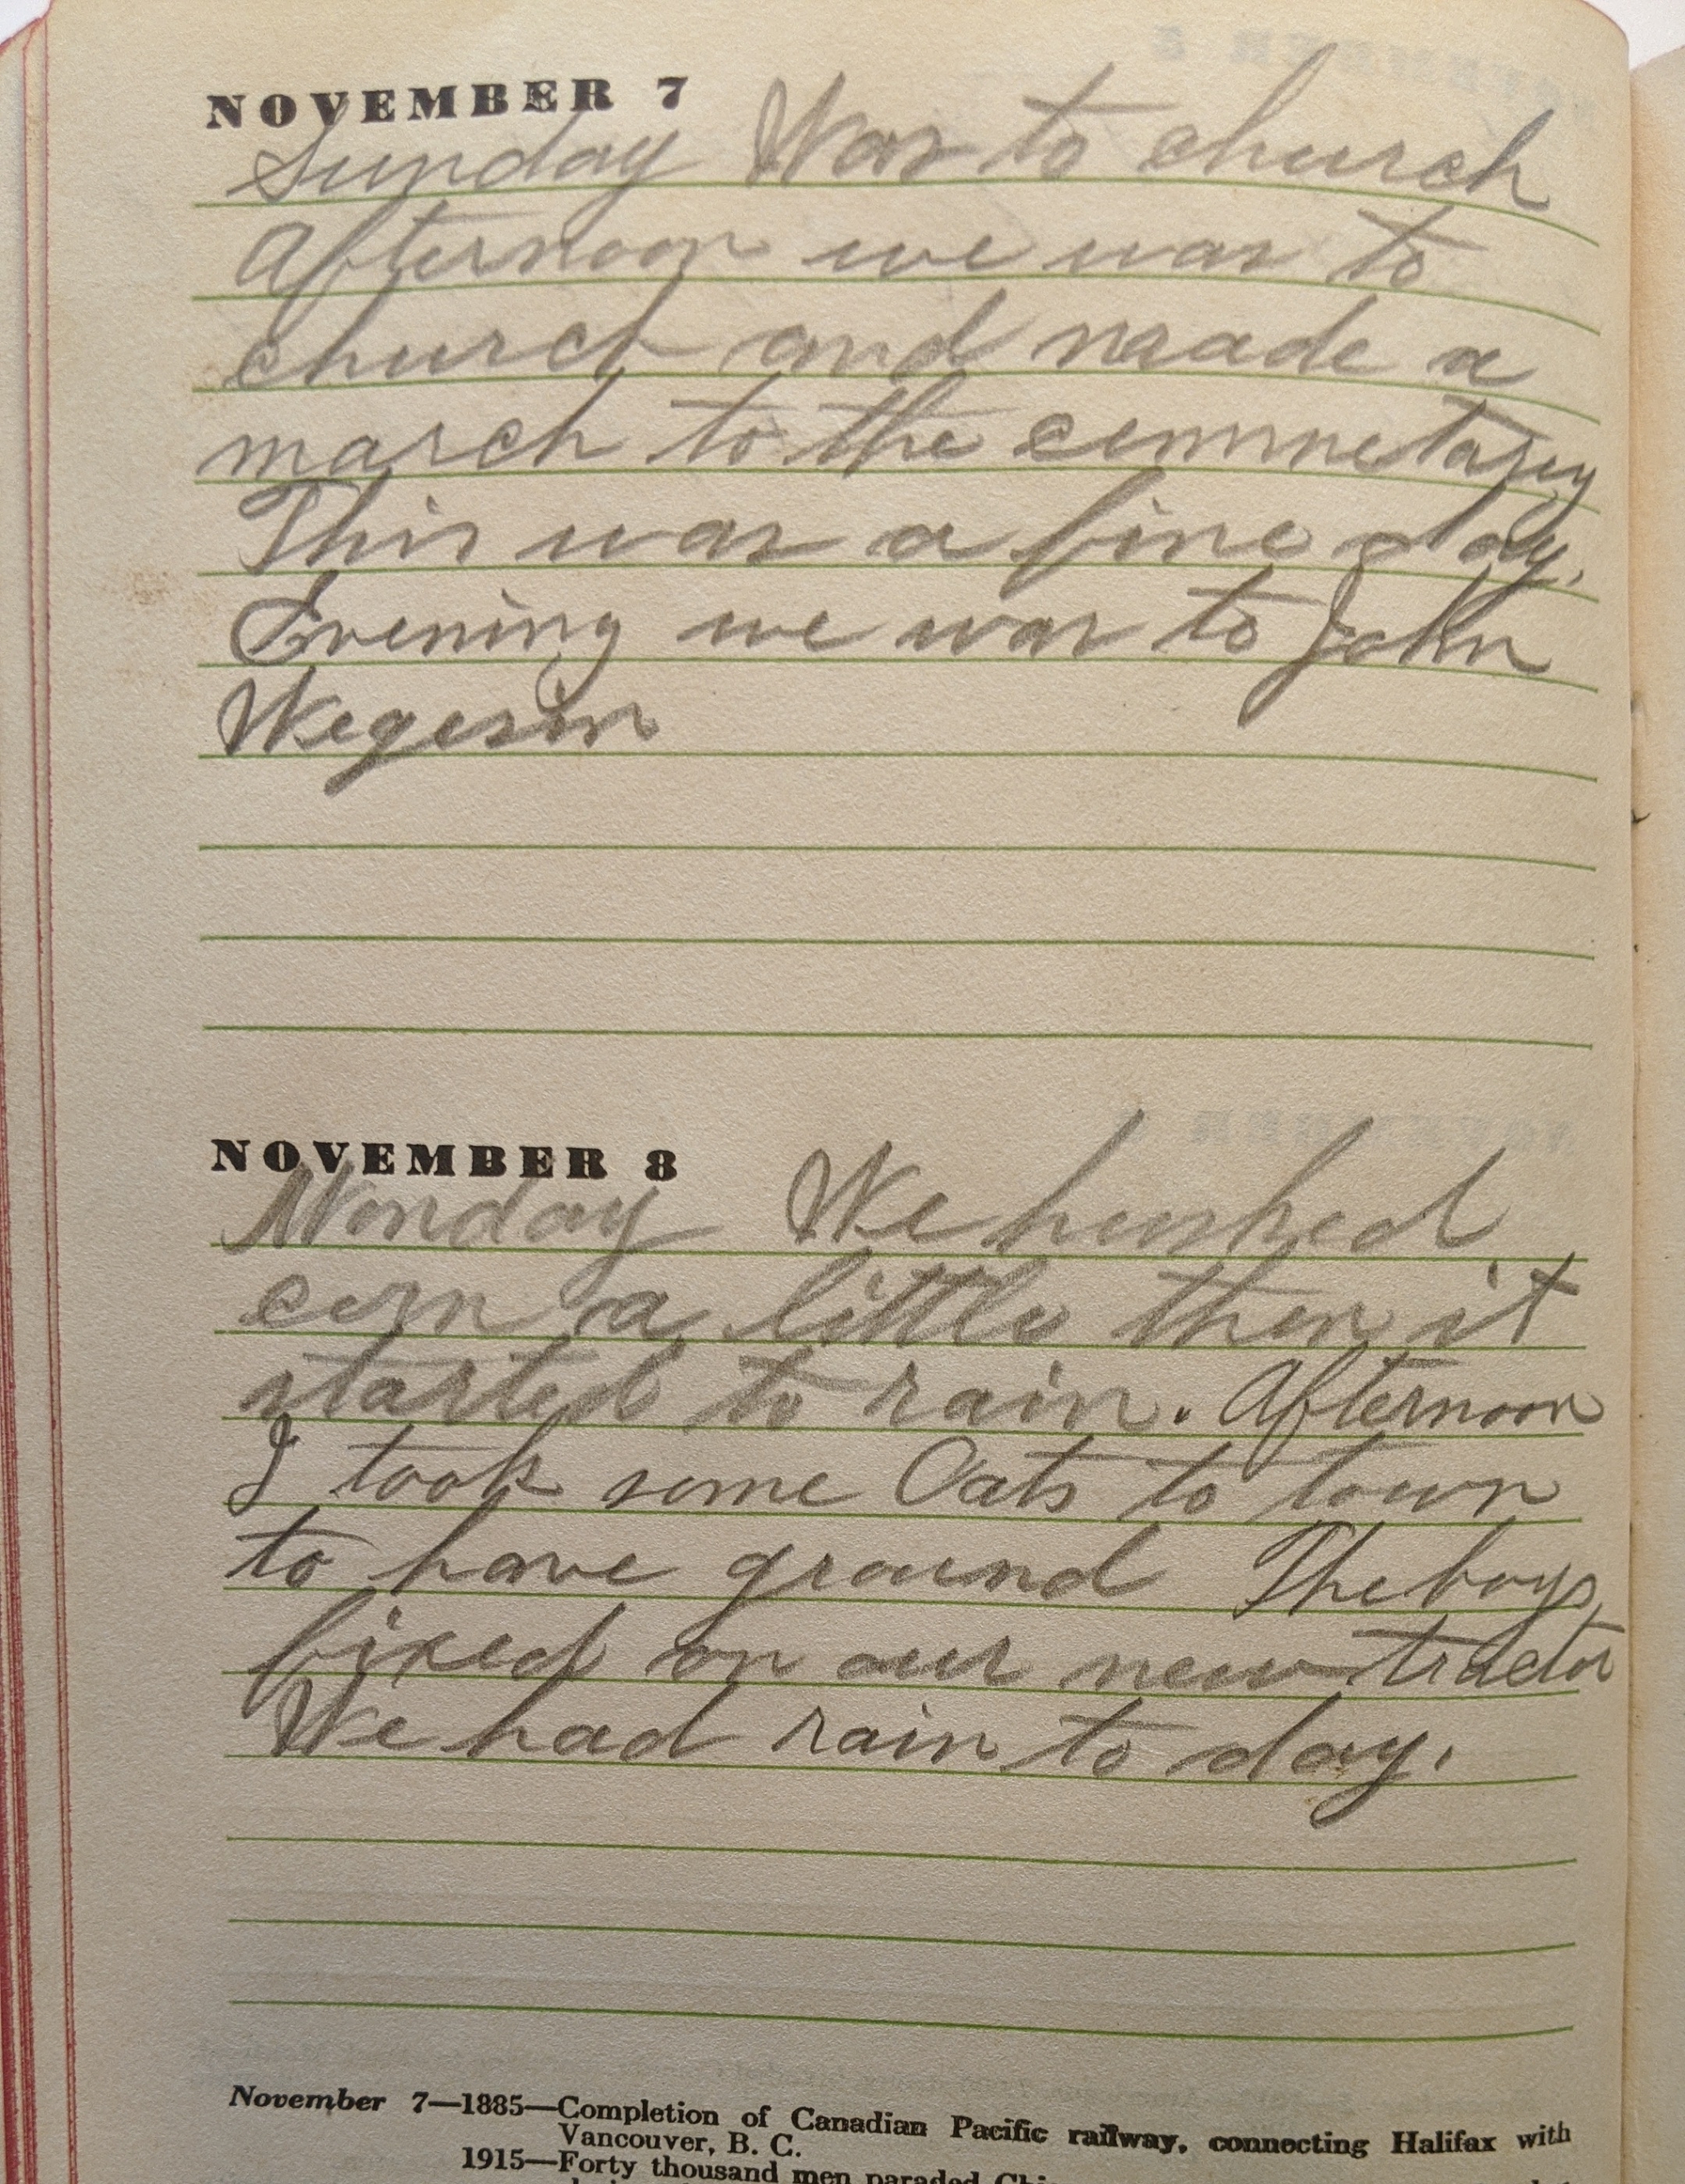 NOVEMBER 7
Sunday Was to church
Afternoon we was to
church and made a
march to the cemmetarey
This was a fine day.
Evening we was to John
Wegesin
NOVEMBER 8
Monday We husked
corn a little then it
started to rain. Afternoon
I took some Oats to town
to have ground The boys
fixed on our new tractor
We had rain to day.
November 7—1885—Completion of Canadian Pacific railway, connecting Halifax with
Vancouver, B. C.
1915—Forty thousand men paraded